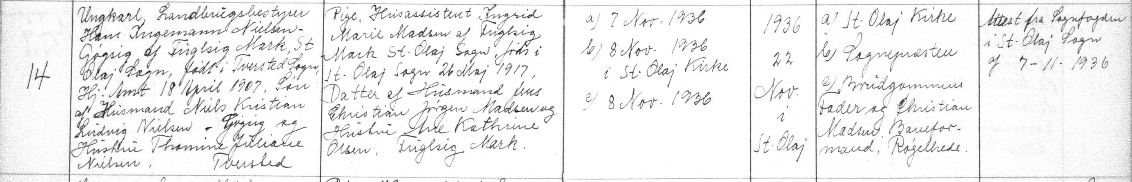 14
Ungkarl, Landbrugsbestyrer
Hans Ingemann Nielsen-
Gøgsig af Fuglsig Mark, St
Olaj Sogn, født i Tversted Sogn,
Hj. Amt 18 April 1907, Søn
af Husmand Niels Kristian
Ludvig Nielsen - Gøgsig og
Hustru Thomine Juliane
Nielsen. Tversted
Pige, Husassistent Ingrid
Marie Madsen af Fuglsig
Mark St. Olaj Sogn, født i
St. Olaj Sogn 26 Maj 1917,
Datter af Husmand Jens
Christian Jørgen Madsen og
Hustru Ane Kathrine
Olsen, Fuglsig Mark.
a) 7 Nov. 1936
b) 8 Nov. 1936
i St. Olaj Kirke
c) 8 Nov. 1936
1936
22
Nov
i
St. Olaj
a) St. Olaj Kirke
b) Sognepræsten
c) Brudgommens
Fader og Christian
Madsen, Banefor-
mand,
Attest fra Sognefogden
i St. Olaj Sogn
af 7-11-1936